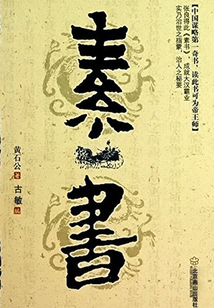 【中国谋略第一奇书，读此书可为帝王师】
张良得此《素书》，成就大汉霸业
实乃治世之指蒙，治人之秘要
素書
黄石公 著
古敏 编
北京燕山出版社